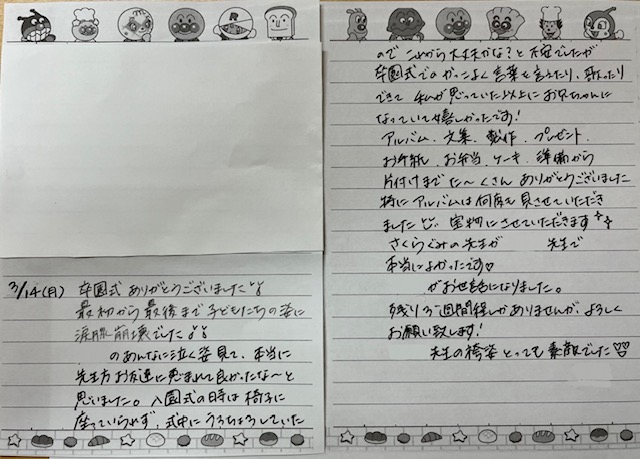 3/14(月) 卒園式 ありがとうございました
最初から最後まで子どもたちの姿に
涙腺崩壊でした
のあんなに泣く姿見て、本当に
先生方お友達に恵まれて良かったな〜と
思いました。入園式の時は椅子に
座っていられず、式中にうろちょろしていた
のでこれから大丈夫かな?と不安でしたが
卒園式でのかっこよく言葉を言えたり、歌ったり
できて私が思っていた以上にお兄ちゃんに
なっていて嬉しかったです!
アルバム、文集、製作、プレゼント、
お手紙、お弁当、ケーキ、準備から
片付けまでた〜くさん ありがとうございました
特にアルバムは何度も見させていただき
ました 宝物にさせていただきます
さくらぐみの先生が 先生で
本当によかったです♡
がお世話になりました。
残り3週間程しかありませんが、よろしく
お願い致します!
先生の袴姿とっても素敵でした♡♡